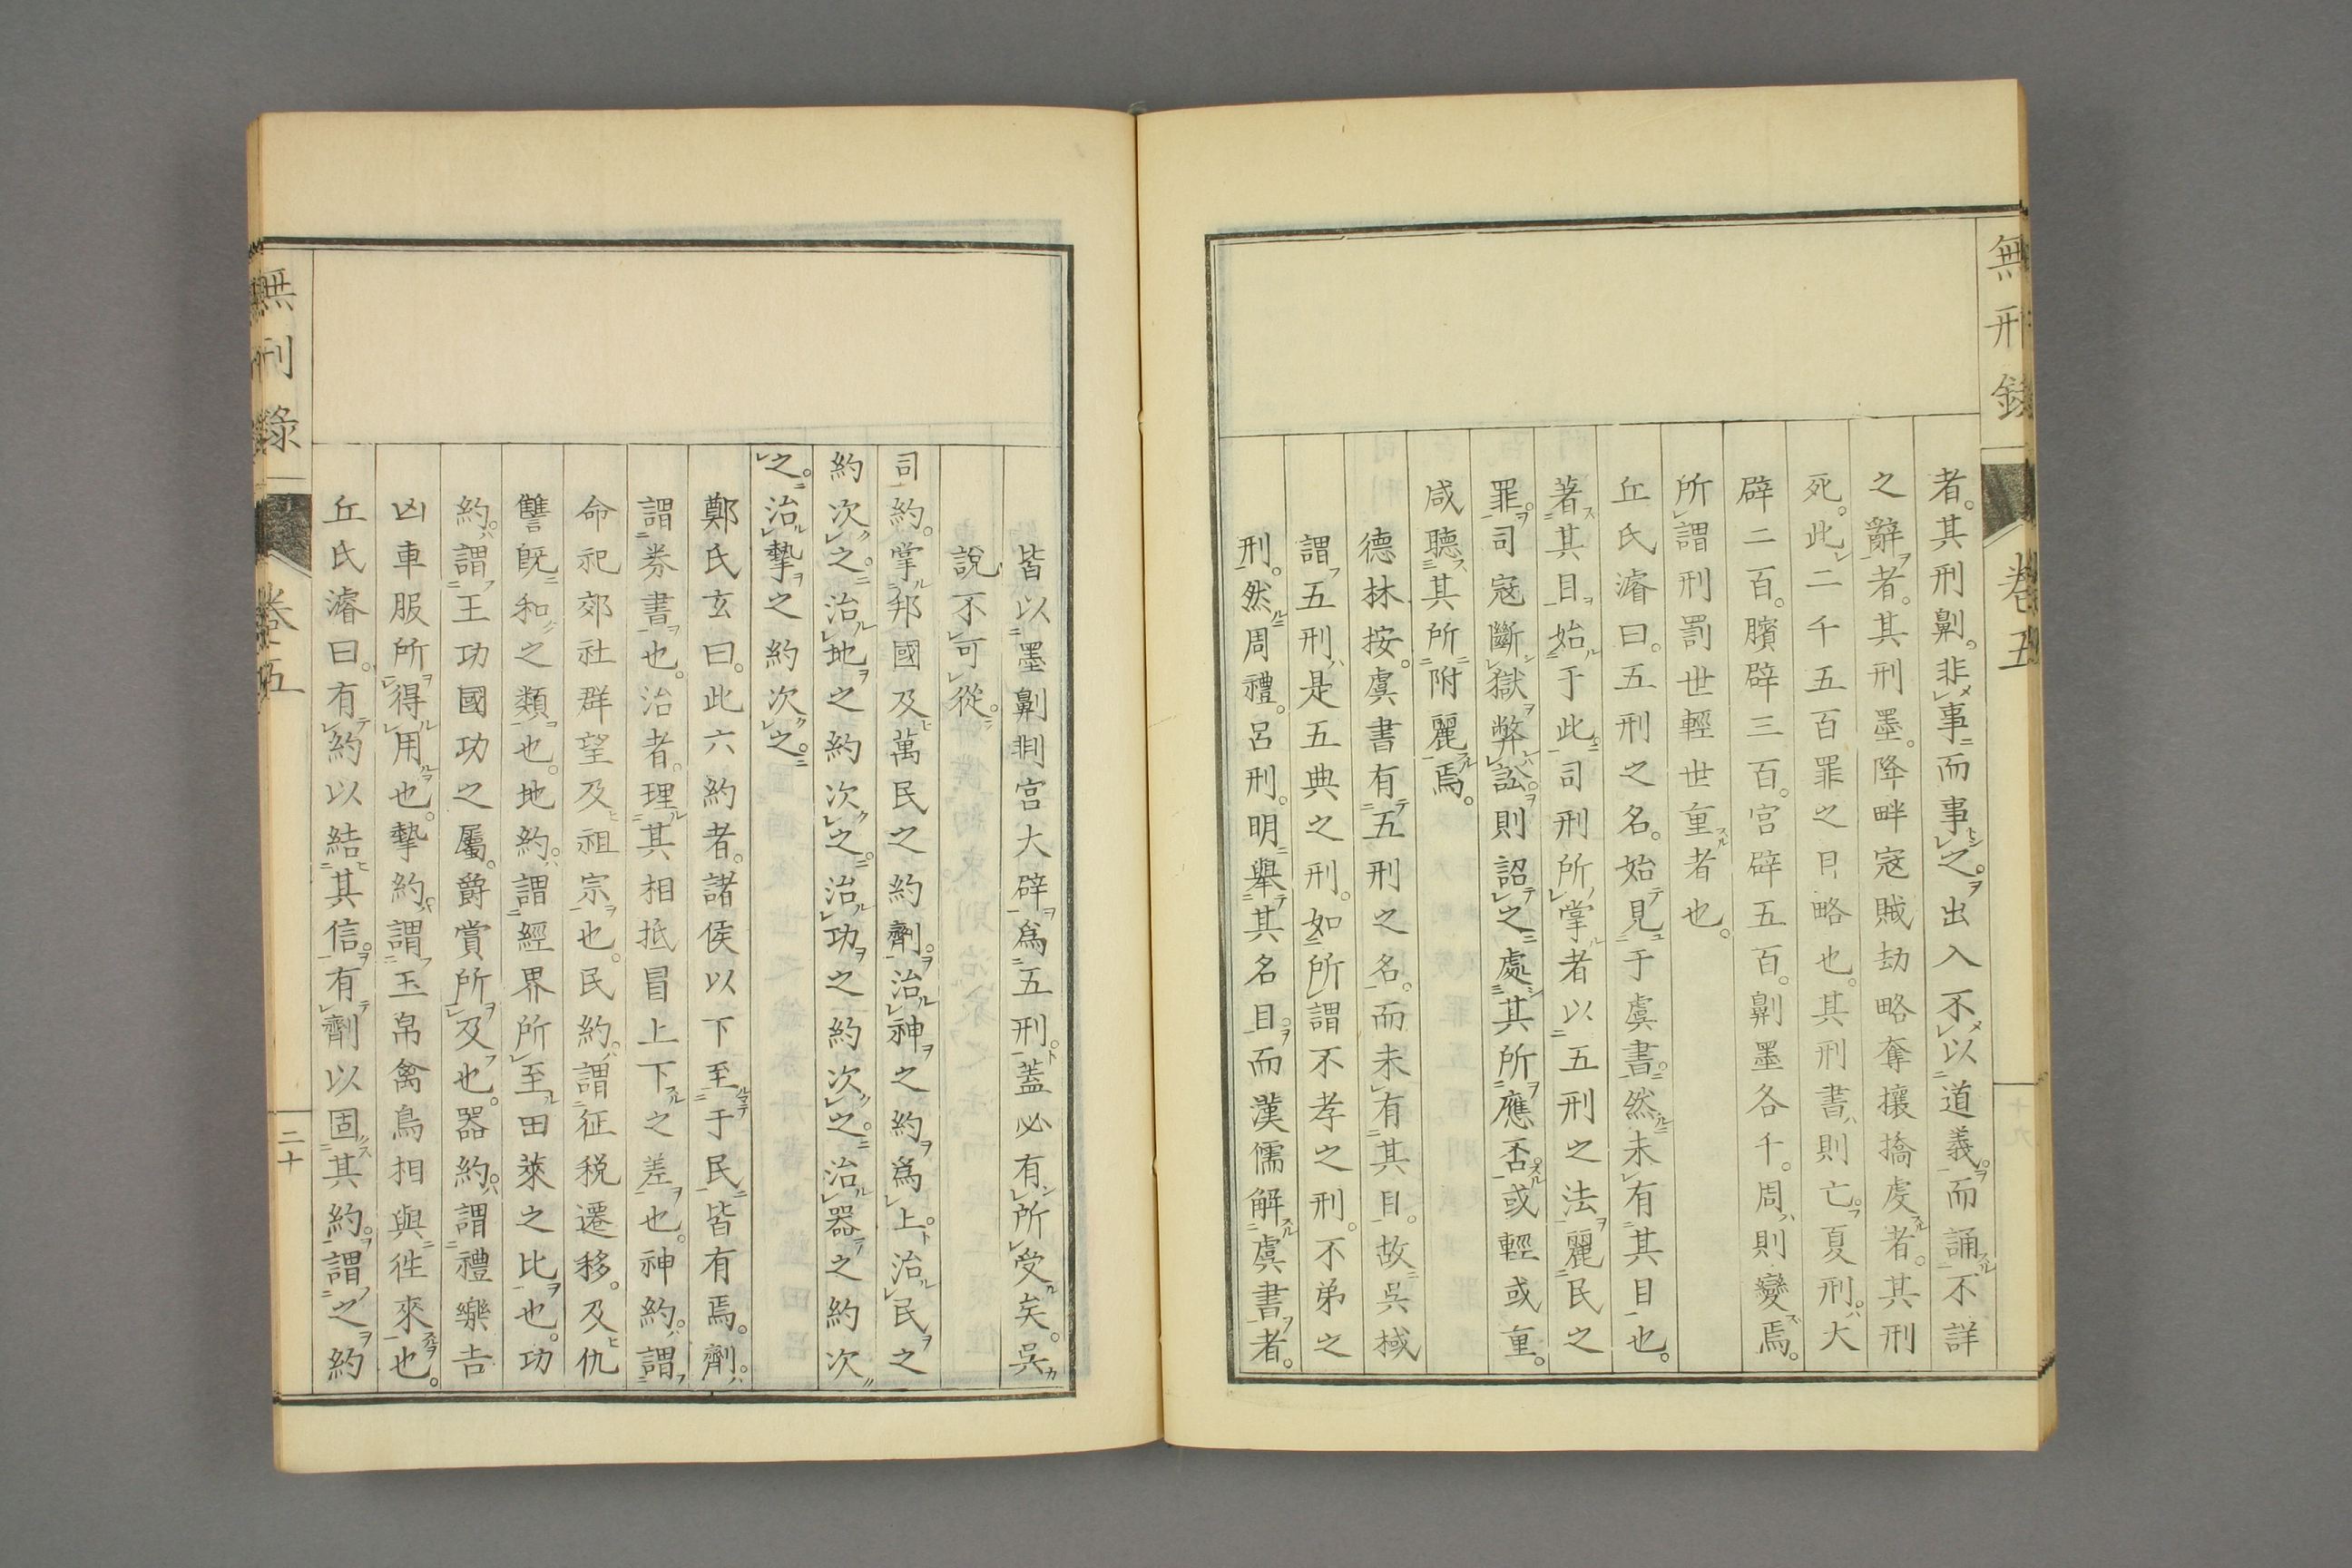 無刑錄
卷五
者。其刑劓。非事而事之。出入不以道義。而誦不詳
之辭者。其刑墨。降畔寇賊劫略奪攘撟虔者。其刑
死。此二千五百罪之目略也。其刑書則亡。夏刑大
辟二百。臏辟三百。宮辟五百。劓墨各千。周則變焉。
所謂刑罰世輕世重者也。
丘氏濬曰。五刑之名。始見于虞書。然未有其目也。
著其目始于此。司刑所掌者以五刑之法麗民之
罪。司寇斷獄弊訟。則詔之處其所應否。或輕或重。
咸聽其所附麗焉。
德林按。虞書有五刑之名。而未有其目。故吳棫
謂五刑是五典之刑。如所謂不孝之刑。不弟之
刑。然周禮。呂刑。明舉其名目。而漢儒解虞書者。
皆以墨劓剕宮大辟爲五刑。蓋必有所受矣。吳
說不可從。
司約。掌邦國及萬民之約劑。治神之約爲上。治民之
約次之。治地之約次之。治功之約次之。治器之約次
之。治摯之約次之。
鄭氏玄曰。此六約者。諸侯以下至于民皆有焉。劑。
謂券書也。治者。理其相抵冒上下之差也。神約。謂
命祀郊社群望及祖宗也。民約。謂征稅遷移。及仇
讐旣和之類也。地約。謂經界所至田萊之比也。功
約。謂王功國功之屬。爵賞所及也。器約。謂禮樂吉
凶車服所得用也。摯約。謂玉帛禽鳥相與徃來也。
丘氏濬曰。有約以結其信。有劑以固其約。謂之約
無刑錄
卷五
二十